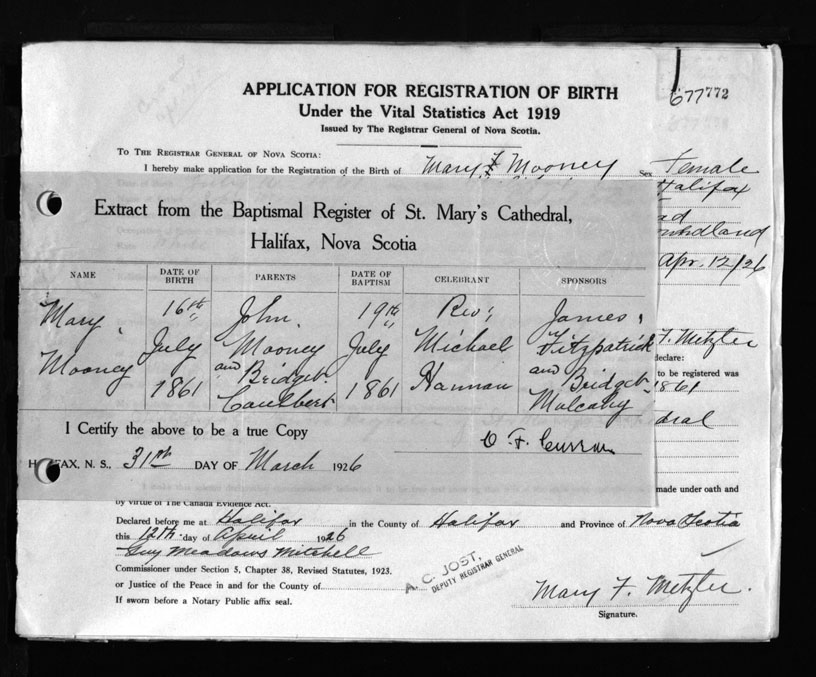 APPLICATION FOR REGISTRATION OF BIRTH
Under the Vital Statistics Act 1919
Issued by The Registrar General of Nova Scotia.
677772
TO THE REGISTRAR GENERAL OF NOVA SCOTIA:
I hereby make application for the Registration of the Birth of Mary F Mooney Sex Female
Halifax
ad
Apr. 12/26
F. Metzler
declare:
to be registered was
1861
dral
Extract from the Baptismal Register of St. Mary's Cathedral,
Halifax, Nova Scotia
NAME DATE OF BIRTH PARENTS DATE OF BAPTISM CELEBRANT SPONSORS
Mary 16th John 19th Rev: James
Mooney July Mooney July Michael Fitzpatrick
1861 and Bridget 1861 Hannan and Bridget
Mulcahy
I Certify the above to be a true Copy
HALIFAX, N. S., 31st DAY OF March 1926
made under oath and
by virtue of The Canada Evidence Act.
Declared before me at Halifax in the County of Halifax and Province of Nova Scotia
this 12th day of April 1926
Guy Meadows Mitchell
Commissioner under Section 5, Chapter 38, Revised Statutes, 1923.
or Justice of the Peace in and for the County of
If sworn before a Notary Public affix seal.
A. C. JOST,
DEPUTY REGISTRAR GENERAL
Mary F. Metzler.
Signature.